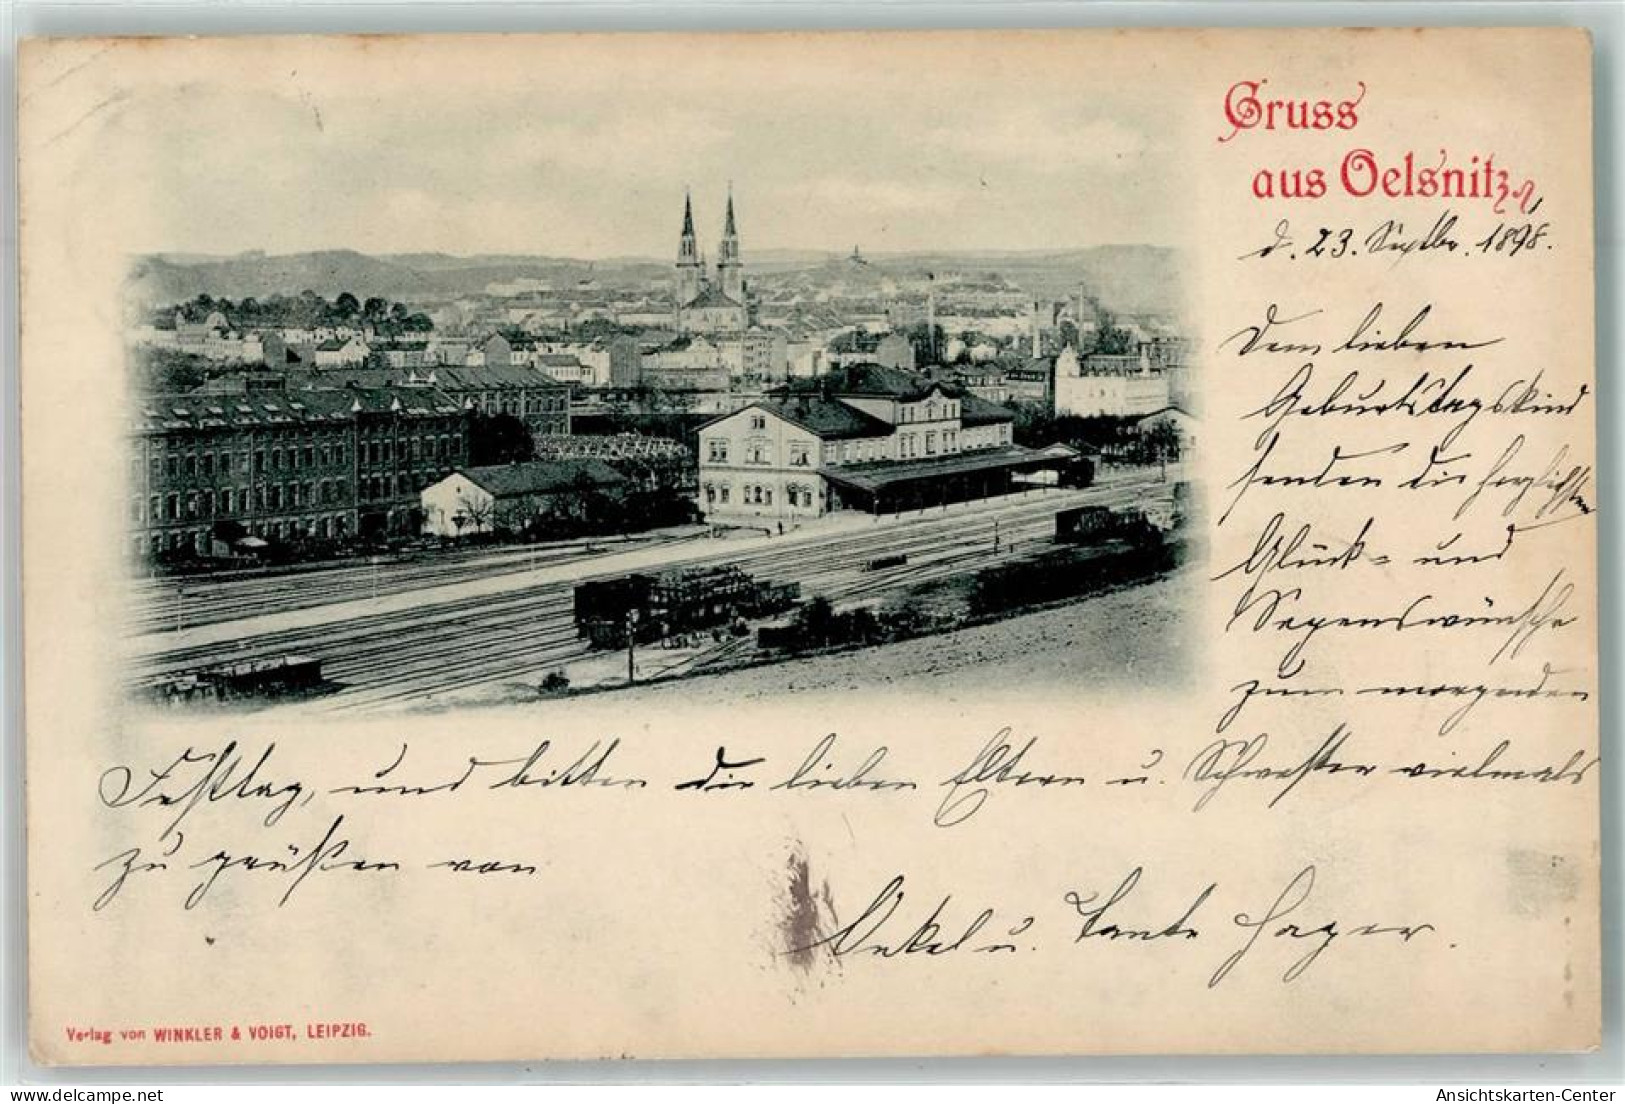 Gruss
aus Oelsnitz,
d. 23. Septbr. 1898.
Dem lieben
Geburtstagskind
senden die herzlichsten
Glück- und
Segenswünsche
zum morgenden
Festtag, und bitten die lieben Eltern u. Schwester vielmals
zu grüßen von
Onkel u. Tante Hager.
Verlag von WINKLER & VOIGT, LEIPZIG.
Ansichtskarten-Center